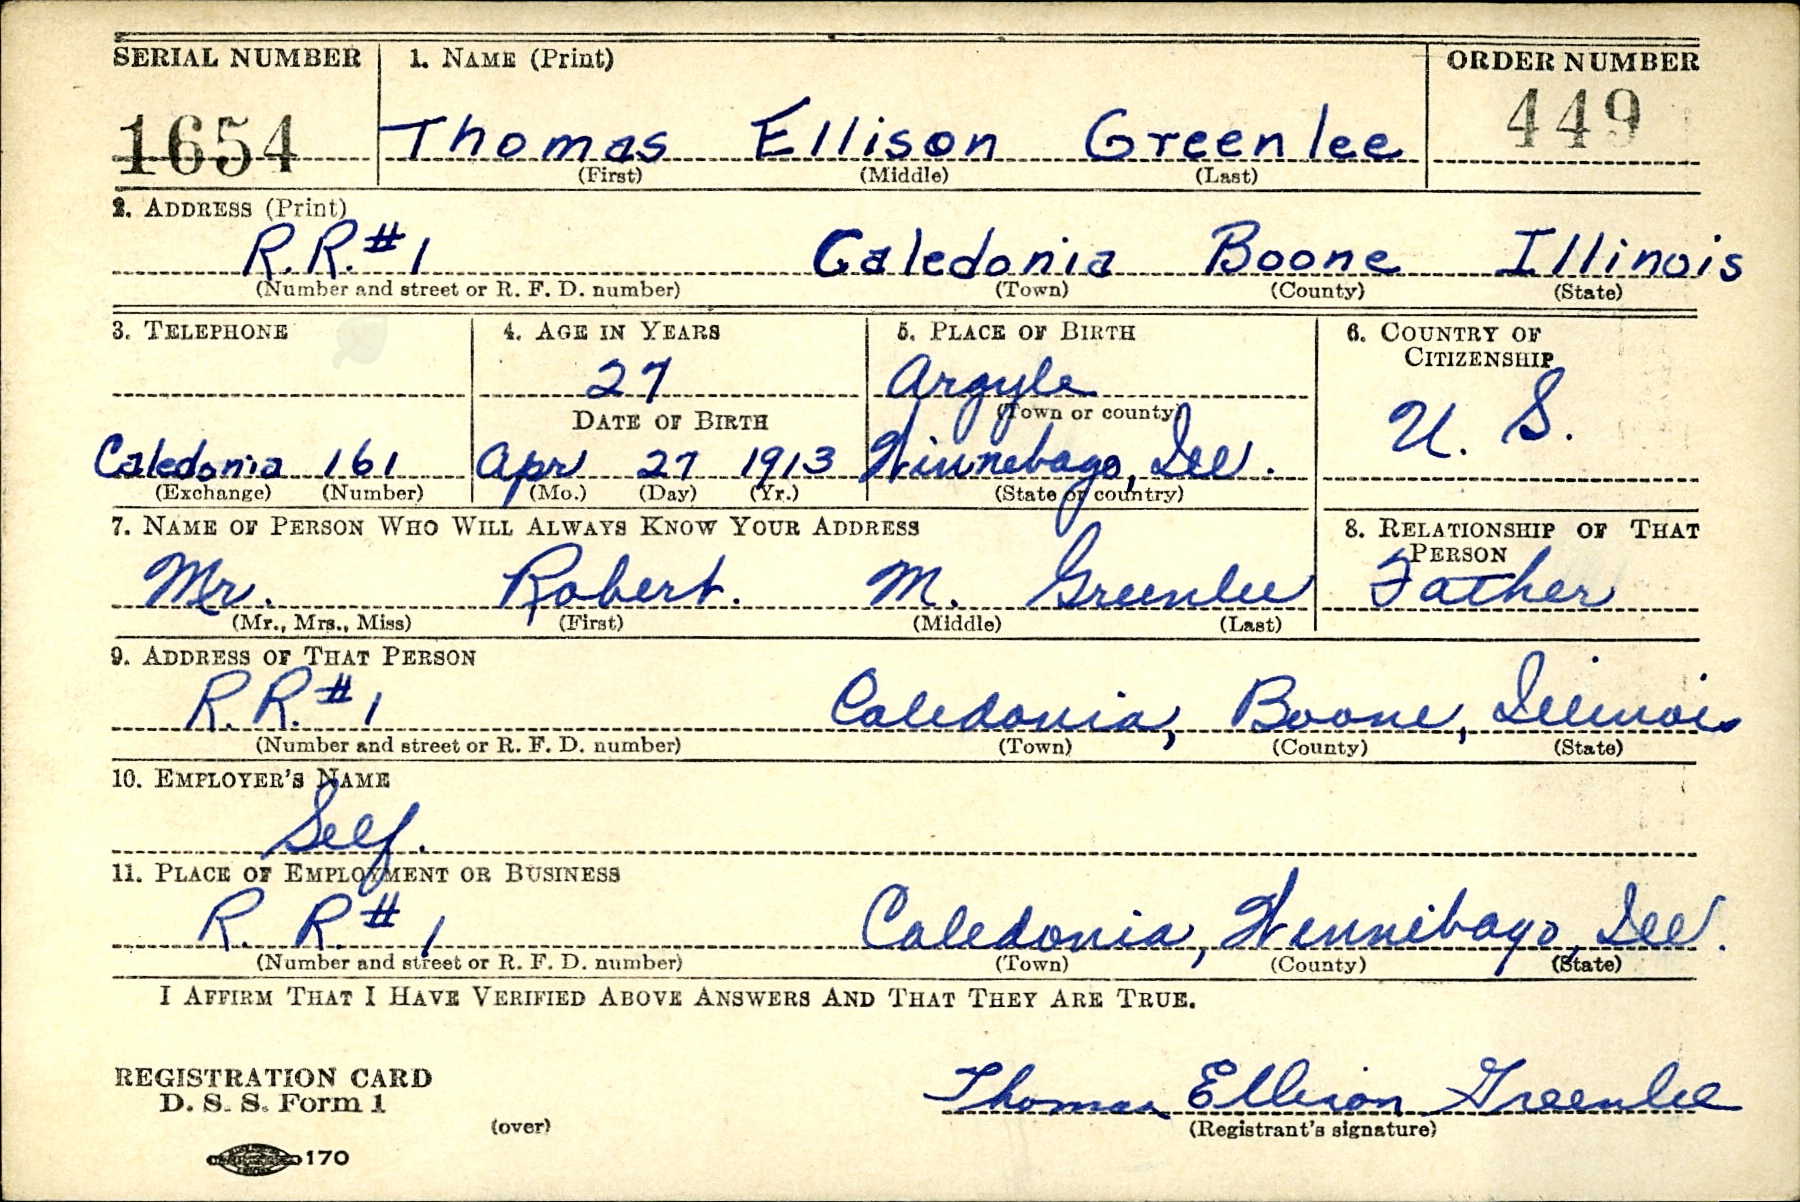 SERIAL NUMBER 1. NAME (Print) ORDER NUMBER
1654 Thomas Ellison Greenlee 449
(First) (Middle) (Last)
2. ADDRESS (Print)
R.R.#1 Caledonia Boone Illinois
(Number and street or R. F. D. number) (Town) (County) (State)
3. TELEPHONE 4. AGE IN YEARS 5. PLACE OF BIRTH 6. COUNTRY OF
CITIZENSHIP
27 Argyle U. S.
DATE OF BIRTH (Town or county)
Caledonia 161 Apr 27 1913 Winnebago, Ill.
(Exchange) (Number) (Mo.) (Day) (Yr.) (State or country)
7. NAME OF PERSON WHO WILL ALWAYS KNOW YOUR ADDRESS 8. RELATIONSHIP OF THAT
PERSON
Mr. Robert. M. Greenlee Father
(Mr., Mrs., Miss) (First) (Middle) (Last)
9. ADDRESS OF THAT PERSON
R.R.#1 Caledonia, Boone, Illinois
(Number and street or R. F. D. number) (Town) (County) (State)
10. EMPLOYER'S NAME
Self.
11. PLACE OF EMPLOYMENT OR BUSINESS
R. R.#1 Caledonia, Winnebago, Ill.
(Number and street or R. F. D. number) (Town) (County) (State)
I AFFIRM THAT I HAVE VERIFIED ABOVE ANSWERS AND THAT THEY ARE TRUE.
REGISTRATION CARD Thomas Ellison Greenlee
D. S. S. Form 1
(over) (Registrant's signature)
170